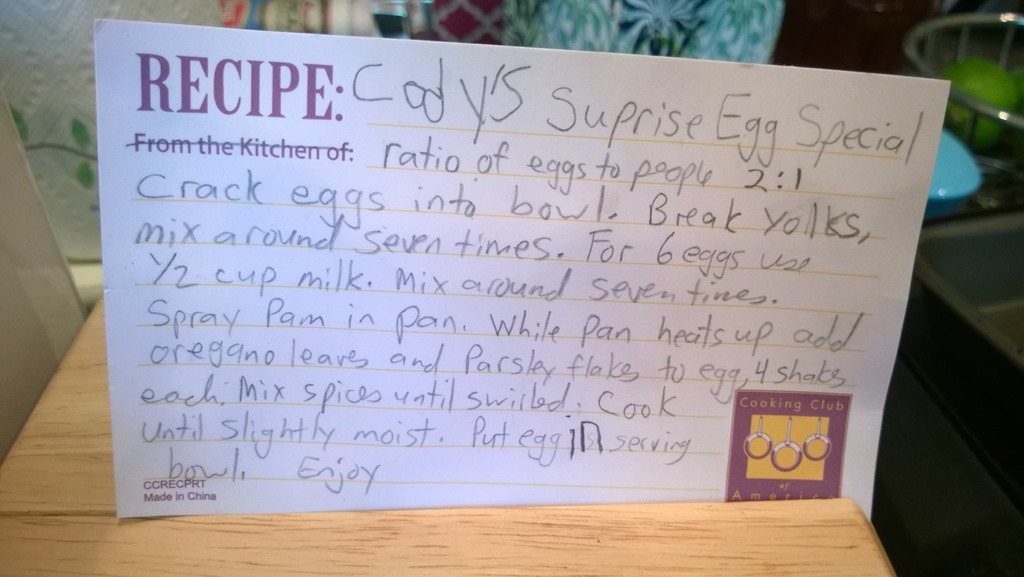 RECIPE: Cody's Suprise Egg Special
From the Kitchen of: ratio of eggs to people 2:1
Crack eggs into bowl. Break yolks,
mix around seven times. For 6 eggs use
1/2 cup milk. Mix around seven times.
Spray Pam in pan. While pan heats up add
oregano leaves and Parsley flakes to egg, 4 shakes
each. Mix spices until swirled. Cook
until slightly moist. Put egg in serving
bowl. Enjoy
CCRECPRT
Made in China
Cooking Club
of
America